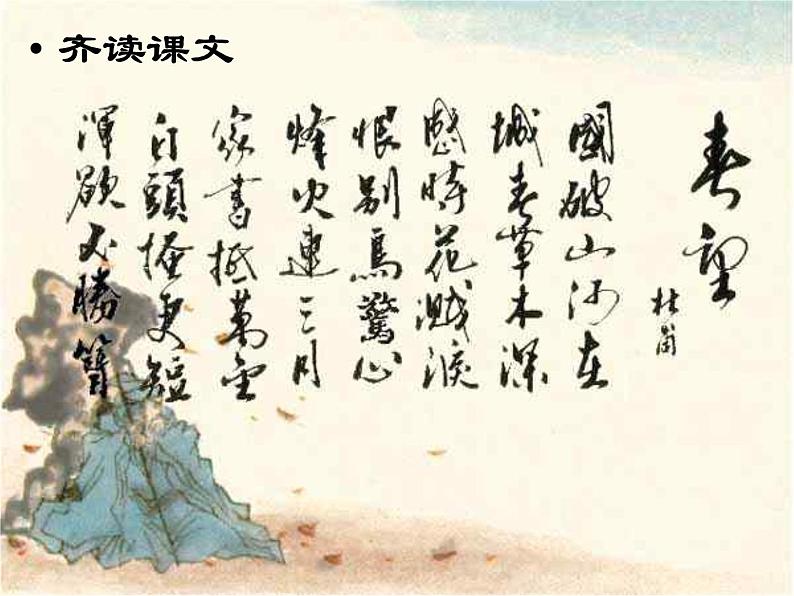 • 齐读课文
春望
杜甫
國破山河在
城春草木深
感時花濺淚
恨別鳥驚心
烽火連三月
家書抵萬金
白頭搔更短
渾欲不勝簪